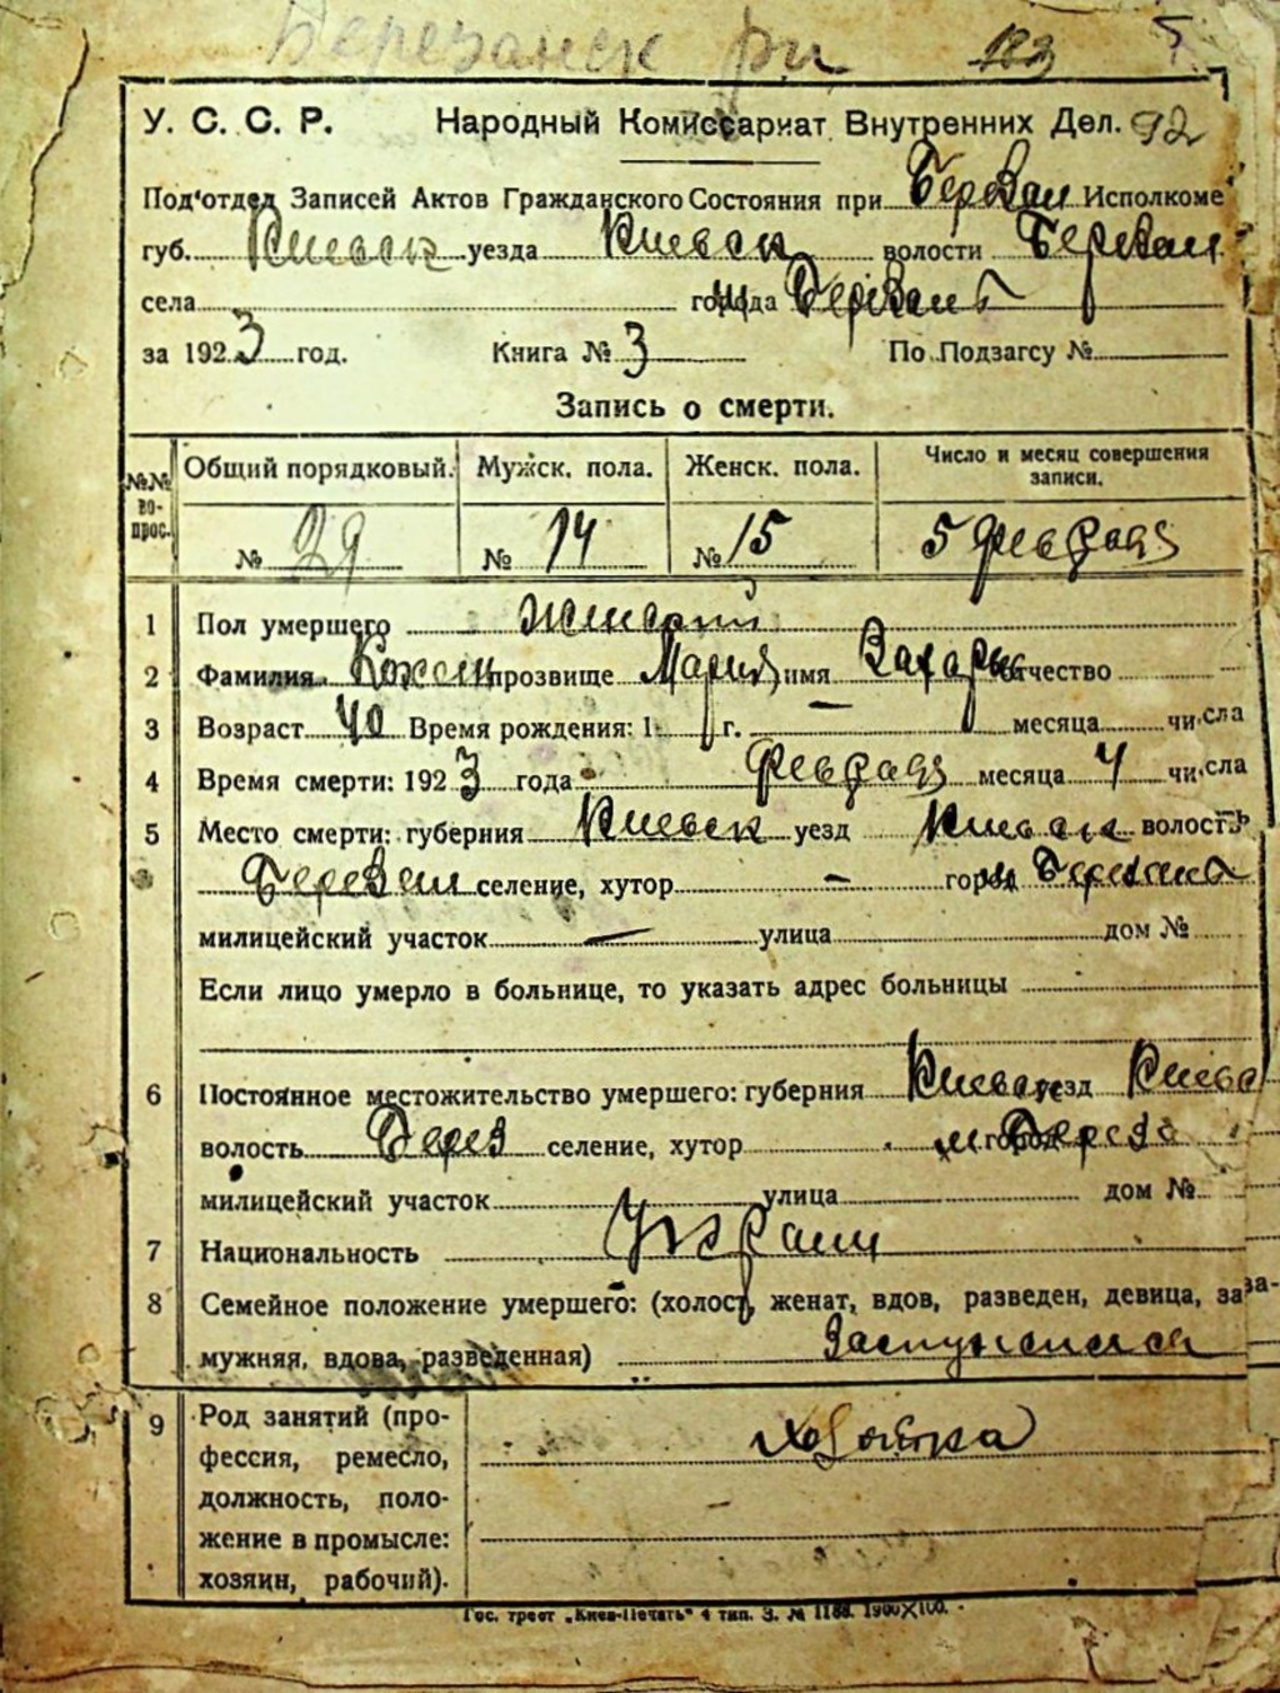 Березанск рн 183 5
У. С. С. Р. Народный Комиссариат Внутренних Дел. 92
Под'отдел Записей Актов Гражданского Состояния при Березан Исполкоме
губ. Киевск уезда Киевск волости Березан
села города Березань
за 1923 год. Книга № 3 По Подзагсу №
Запись о смерти.
№№ во-прос. Общий порядковый. Мужск. пола. Женск. пола. Число и месяц совершения записи.
№ 29 № 14 № 15 5 Февраля
1 Пол умершего Женский
2 Фамилия прозвище Мария имя Захарьев отчество
3 Возраст 40 Время рождения: 1 г. — месяца числа
4 Время смерти: 1923 года Февраля месяца 4 числа
5 Место смерти: губерния Киевск уезд Киевск волость
Березан селение, хутор — город Березань
милицейский участок — улица дом №
Если лицо умерло в больнице, то указать адрес больницы
6 Постоянное местожительство умершего: губерния Киевск уезд Киевс
волость Берез селение, хутор м город Береза
милицейский участок улица дом №
7 Национальность Украин
8 Семейное положение умершего: (холост, женат, вдов, разведен, девица, за-
мужняя, вдова, разведенная)
9 Род занятий (про-
фессия, ремесло,
должность, поло-
жение в промысле:
хозяин, рабочий).
Гос. трест „Киев-Печать" 4 тип. З. № 1188. 1900×100.